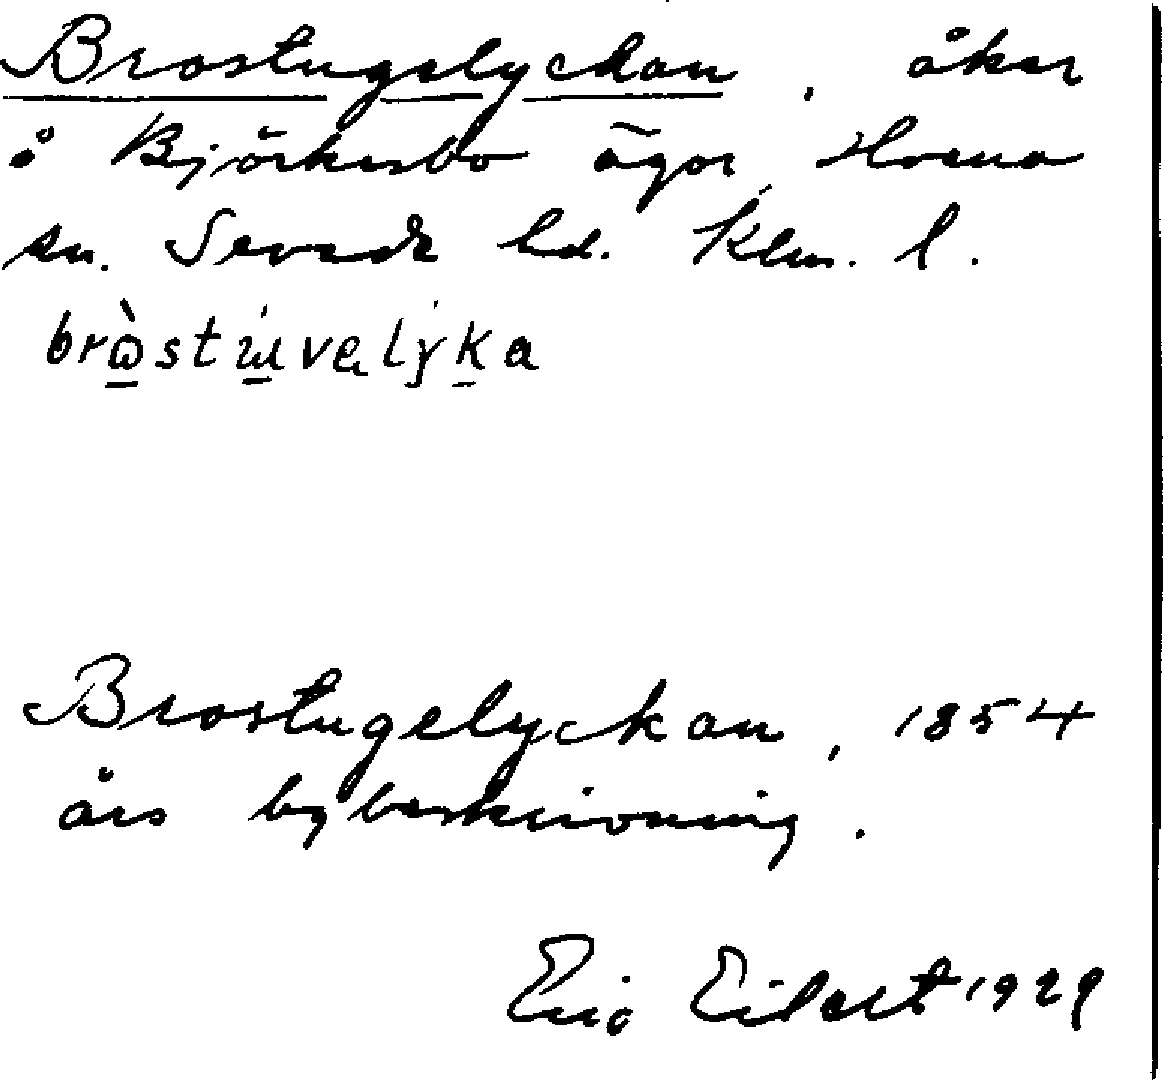 Brostugelyckan, åker
å Björkesbo ägor, Horna
sn. Sevede hd. Klm. l.
bròstu̇velyka
Brostugelyckan, 1854
års bybeskrivning.
Eric Eilert 1929